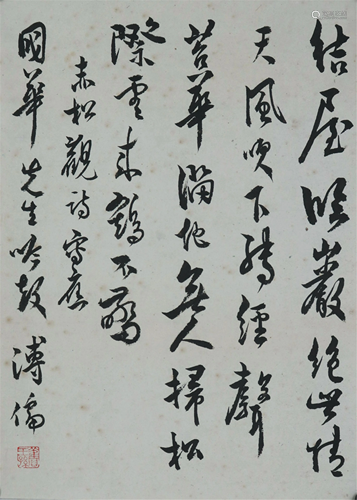 結屋臨巖絕世情
天風吹下轉經聲
苔華滿地無人掃松
際雲來鶴不驚
赤松觀詩書應
國華先生吟教
溥儒